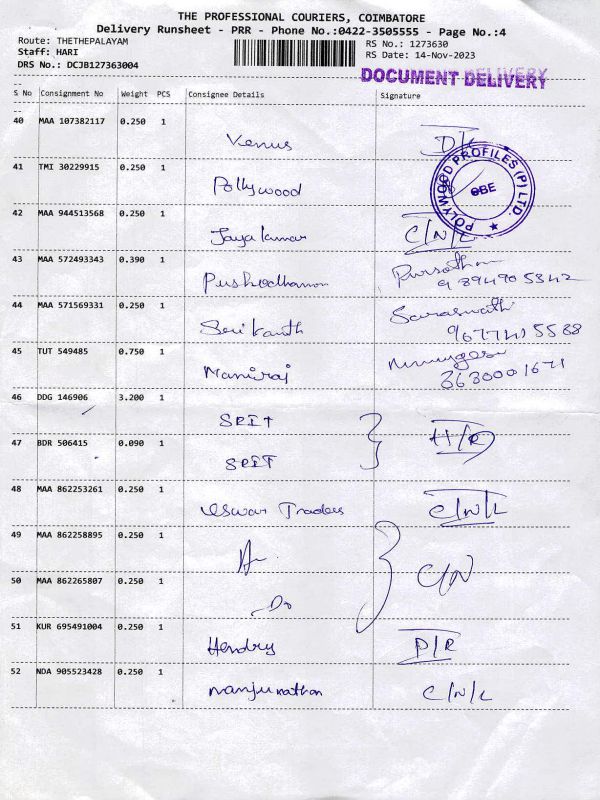 THE PROFESSIONAL COURIERS, COIMBATORE
Delivery Runsheet - PRR - Phone No.:0422-3505555 - Page No.:4
Route: THETHEPALAYAM RS No.: 1273630
Staff: HARI RS Date: 14-Nov-2023
DRS No.: DCJB127363004
DOCUMENT DELIVERY
S No Consignment No Weight PCS Consignee Details Signature
40 MAA 107382117 0.250 1 Venus
41 TMI 30229915 0.250 1 Pollywood
POLYWOOD PROFILES (P) LTD. ★
CBE
42 MAA 944513568 0.250 1 Jayakumar C/N/L
43 MAA 572493343 0.390 1
44 MAA 571569331 0.250 1 Srikanth Saraswathi
45 TUT 549485 0.750 1 Maniraj
46 DDG 146906 3.200 1 SRIT
H/R
47 BDR 506415 0.090 1 SRIT
48 MAA 862253261 0.250 1 Eswar Traders C/N/L
49 MAA 862258895 0.250 1
C/N
50 MAA 862265807 0.250 1 Do
51 KUR 695491004 0.250 1 Hendry P/R
52 NDA 905523428 0.250 1 Nanjunathan C/N/L